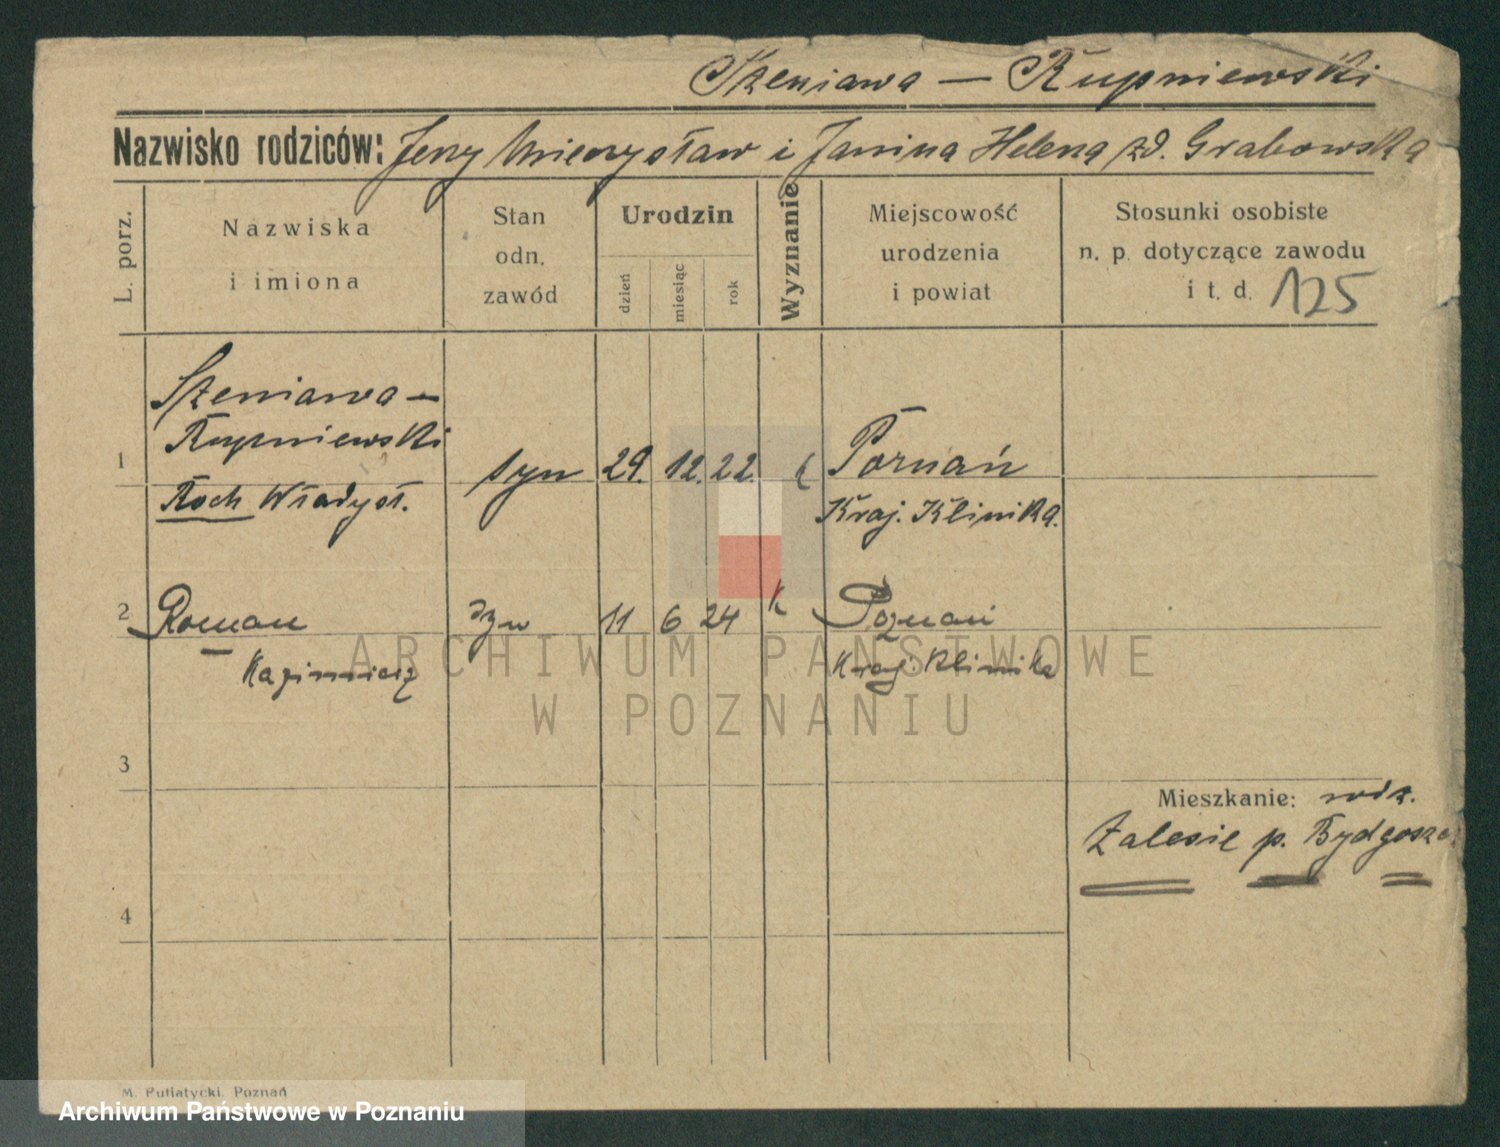 Szeniawa — Rupniewski
Nazwisko rodziców: Jerzy Mieczysław i Janina Helena zd. Grabowska
L. porz.
Nazwiska
i imiona
Stan
odn.
zawód
Urodzin
dzień
miesiąc
rok
Wyznanie
Miejscowość
urodzenia
i powiat
Stosunki osobiste
n. p. dotyczące zawodu
i t. d. 125
Szeniawa —
Rupniewski
1 syn 29. 12. 22. k Poznań
Roch Władysł. Kraj. Klinika.
2 Roman syn 11 6 24 k Poznań
Kazimierz Kraj. Klinika
ARCHIWUM PAŃSTWOWE
W POZNANIU
3
Mieszkanie: rodz.
Zalesie p. Bydgoszcz
4
M. Putiatycki, Poznań
Archiwum Państwowe w Poznaniu